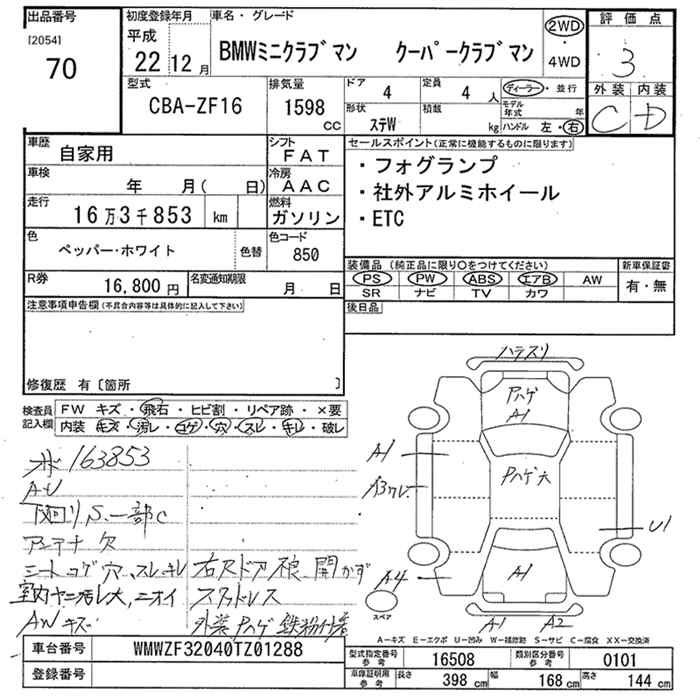 出品番号
[2054]
70
初度登録年月
平成
22 12 月
車名・グレード
BMWミニクラブマン クーパークラブマン
2WD
・
4WD
評価点
3
外装 内装
C D
型式
CBA-ZF16
排気量
1598
cc
ドア
4
定員
4 人
形状
ステW
積載
kg
ディーラー・並行
モデル年式
年
ハンドル 左・右
車歴
自家用
シフト
FAT
車検
年 月( 日)
冷房
AAC
走行
16万3千853 km
燃料
ガソリン
色
ペッパー・ホワイト
色替
色コード
850
R券
16,800 円
名変通知期限
月 日
セールスポイント(正常に機能するものに限ります)
・フォグランプ
・社外アルミホイール
・ETC
装備品(純正品に限り○をつけてください)
PS PW ABS エアB AW
SR ナビ TV カワ
新車保証書
有・無
後日品
注意事項申告欄(不具合内容等は具体的に記入して下さい)
修復歴 有〔箇所 〕
検査員記入欄
FW キズ・飛石・ヒビ割・リペア跡・×要
内装 キズ・汚レ・コゲ・穴・スレ・キレ・破レ
163853
AU
下廻りS、一部C
アンテナ欠
シートコゲ穴、スレキレ
室内ヤニ汚レ大、ニオイ
AWキズ
右Rドア 開かず
スタッドレス
外装Pハゲ 鉄粉付着
ハラスリ
Pハゲ
A1
A1
Pハゲ大
U1
A4
A1
A1
A2
スペア
A-キズ E-エクボ U-凹み W-補修跡 S-サビ C-腐食 XX-交換済
車台番号
WMWZF32040TZ01288
登録番号
型式指定番号
参考
16508
類別区分番号
参考
0101
車庫証明用
参考
長さ
398 cm
幅
168 cm
高さ
144 cm